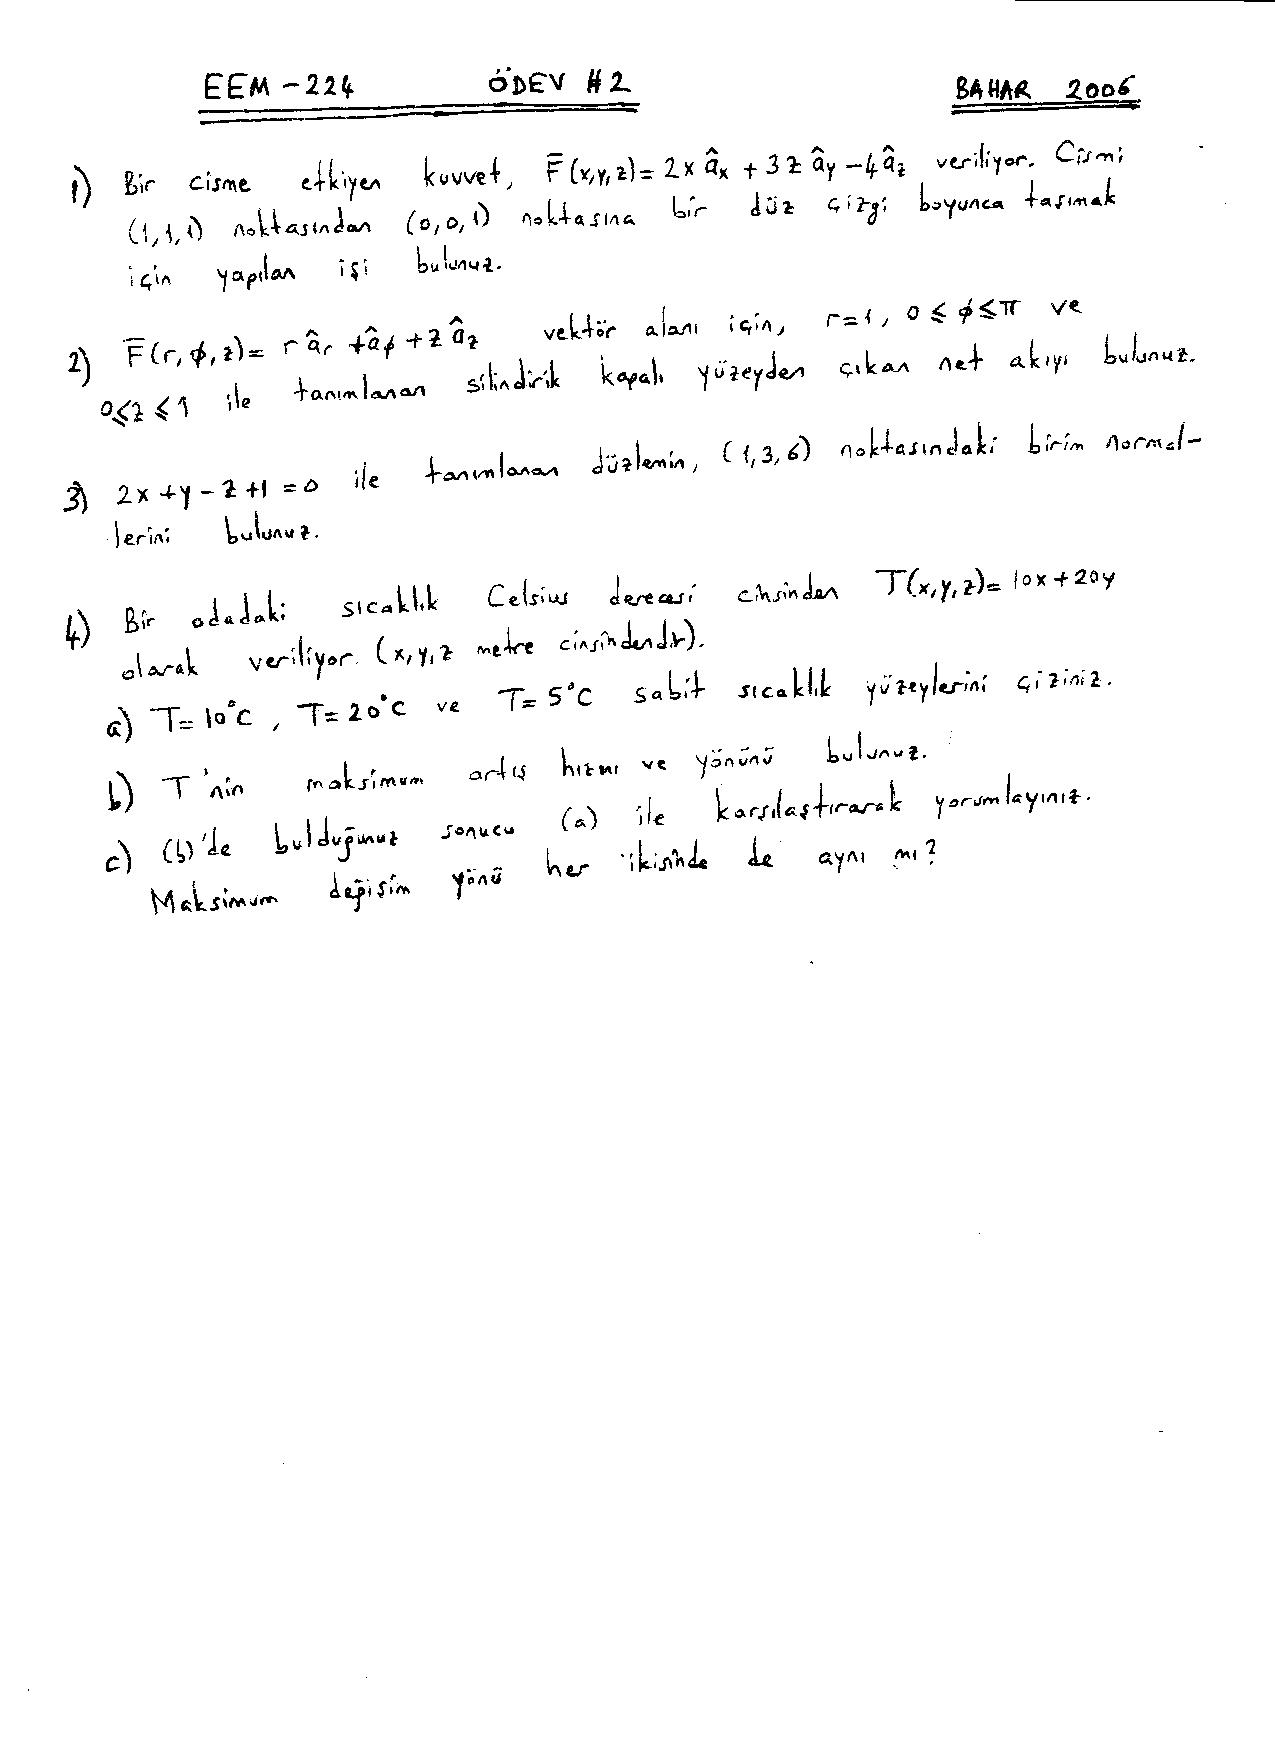 EEM-224 ÖDEV #2 BAHAR 2006
1) Bir cisme etkiyen kuvvet, F̄(x,y,z)= 2x âx + 3z ây - 4âz veriliyor. Cismi
(1,1,1) noktasından (0,0,1) noktasına bir düz çizgi boyunca taşımak
için yapılan işi bulunuz.
2) F̄(r,ϕ,z)= r âr + âϕ + z âz vektör alanı için, r=1, 0≤ϕ≤π ve
0≤z≤1 ile tanımlanan silindirik kapalı yüzeyden çıkan net akıyı bulunuz.
3) 2x+y-z+1=0 ile tanımlanan düzlemin, (1,3,6) noktasındaki birim normal-
lerini bulunuz.
4) Bir odadaki sıcaklık Celsius derecesi cinsinden T(x,y,z)=10x+20y
olarak veriliyor. (x,y,z metre cinsindendir).
a) T=10°C, T=20°C ve T=5°C sabit sıcaklık yüzeylerini çiziniz.
b) T'nin maksimum artış hızını ve yönünü bulunuz.
c) (b)'de bulduğunuz sonucu (a) ile karşılaştırarak yorumlayınız.
Maksimum değişim yönü her ikisinde de aynı mı?